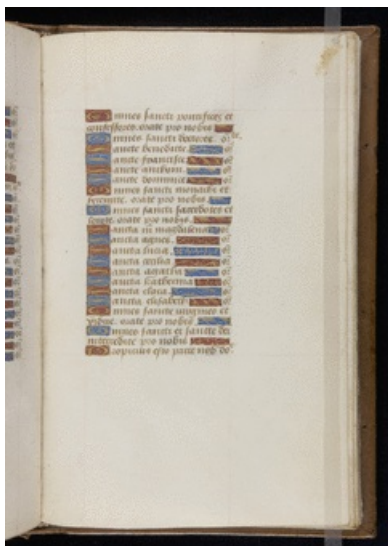 Omnes sancti pontifices et
confessores. orate pro nobis
Omnes sancti doctores. or̃
Sancte benedicte. or̃
Sancte francisce. or̃
Sancte anthoni. or̃
Sancte dominice. or̃
Omnes sancti monachi et
heremite. orate pro nobis.
Omnes sancti sacerdotes et
levite. orate pro nobis.
Sancta m magdalena. or̃
Sancta agnes. or̃
Sancta lucia. or̃
Sancta cecilia. or̃
Sancta agatha. or̃
Sancta katherina or̃
Sancta clara. or̃
Sancta elisabeth or̃
Omnes sancte virgines et
vidue. orate pro nobis.
Omnes sancti et sancte dei
intercedite pro nobis
Propicius esto parce nob do